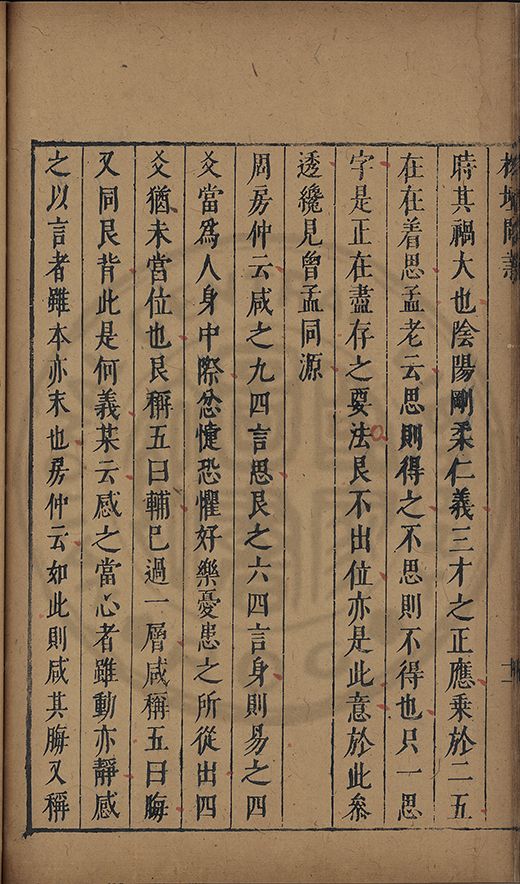 時其禍大也陰陽剛柔仁義三才之正應乗於二五
在在着思孟老云思則得之不思則不得也只一思
字是正在盡存之要法艮不出位亦是此意於此叅
透纔見曾孟同源
周房仲云咸之九四言思艮之六四言身則易之四
爻當為人身中際忿懥恐懼好樂憂患之所從出四
爻猶未當位也艮稱五曰輔巳過一層咸稱五曰脢
又同艮背此是何義某云感之當心者雖動亦靜感
之以言者雖本亦末也房仲云如此則咸其脢又稱